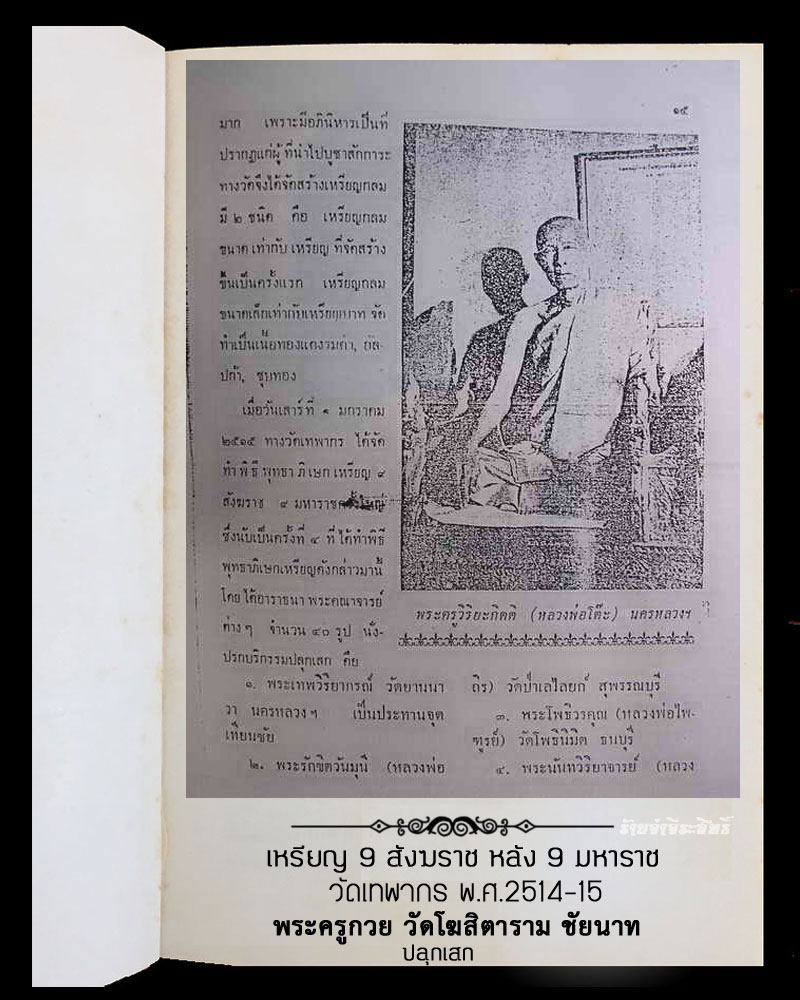 ๑๕
มาก เพราะมีอภินิหารเป็นที่
ปรากฏแก่ผู้ที่นำไปบูชาสักการะ
ทางวัดจึงได้จัดสร้างเหรียญกลม
มี ๒ ชนิด คือ เหรียญกลม
ขนาดเท่ากับ เหรียญ ที่จัดสร้าง
ขึ้นเป็นครั้งแรก เหรียญกลม
ขนาดเล็กเท่ากับเหรียญบาท จัด
ทำเป็นเนื้อทองแดงรมดำ, อัล-
ปก้า, ชุบทอง
เมื่อวันเสาร์ที่ ๑ มกราคม
๒๕๑๕ ทางวัดเทพากร ได้จัด
ทำพิธีพุทธาภิเษกเหรียญ ๙
สังฆราช ๙ มหาราชครั้งใหญ่
ซึ่งนับเป็นครั้งที่ ๔ ที่ได้ทำพิธี
พุทธาภิเษกเหรียญดังกล่าวมานี้
โดยได้อาราธนา พระคณาจารย์
ต่างๆ จำนวน ๔๐ รูป นั่ง-
ปรกบริกรรมปลุกเสก คือ
พระครูวิริยะกิตติ (หลวงพ่อโต๊ะ) นครหลวงฯ
๑. พระเทพวิริยาภรณ์ วัดยานนา
วา นครหลวงฯ เป็นประทานจุด
เทียนชัย
๒. พระรักขิตวันมุนี (หลวงพ่อ
ถิร) วัดป่าเลไลยก์ สุพรรณบุรี
๓. พระโพธิวรคุณ (หลวงพ่อไพ-
ฑูรย์) วัดโพธินิมิต ธนบุรี
๔. พระนันทวิริยาจารย์ (หลวง
ร้านจ่าจิระสิทธิ์
เหรียญ 9 สังฆราช หลัง 9 มหาราช
วัดเทพากร พ.ศ.2514-15
พระครูกวย วัดโฆสิตาราม ชัยนาท
ปลุกเสก